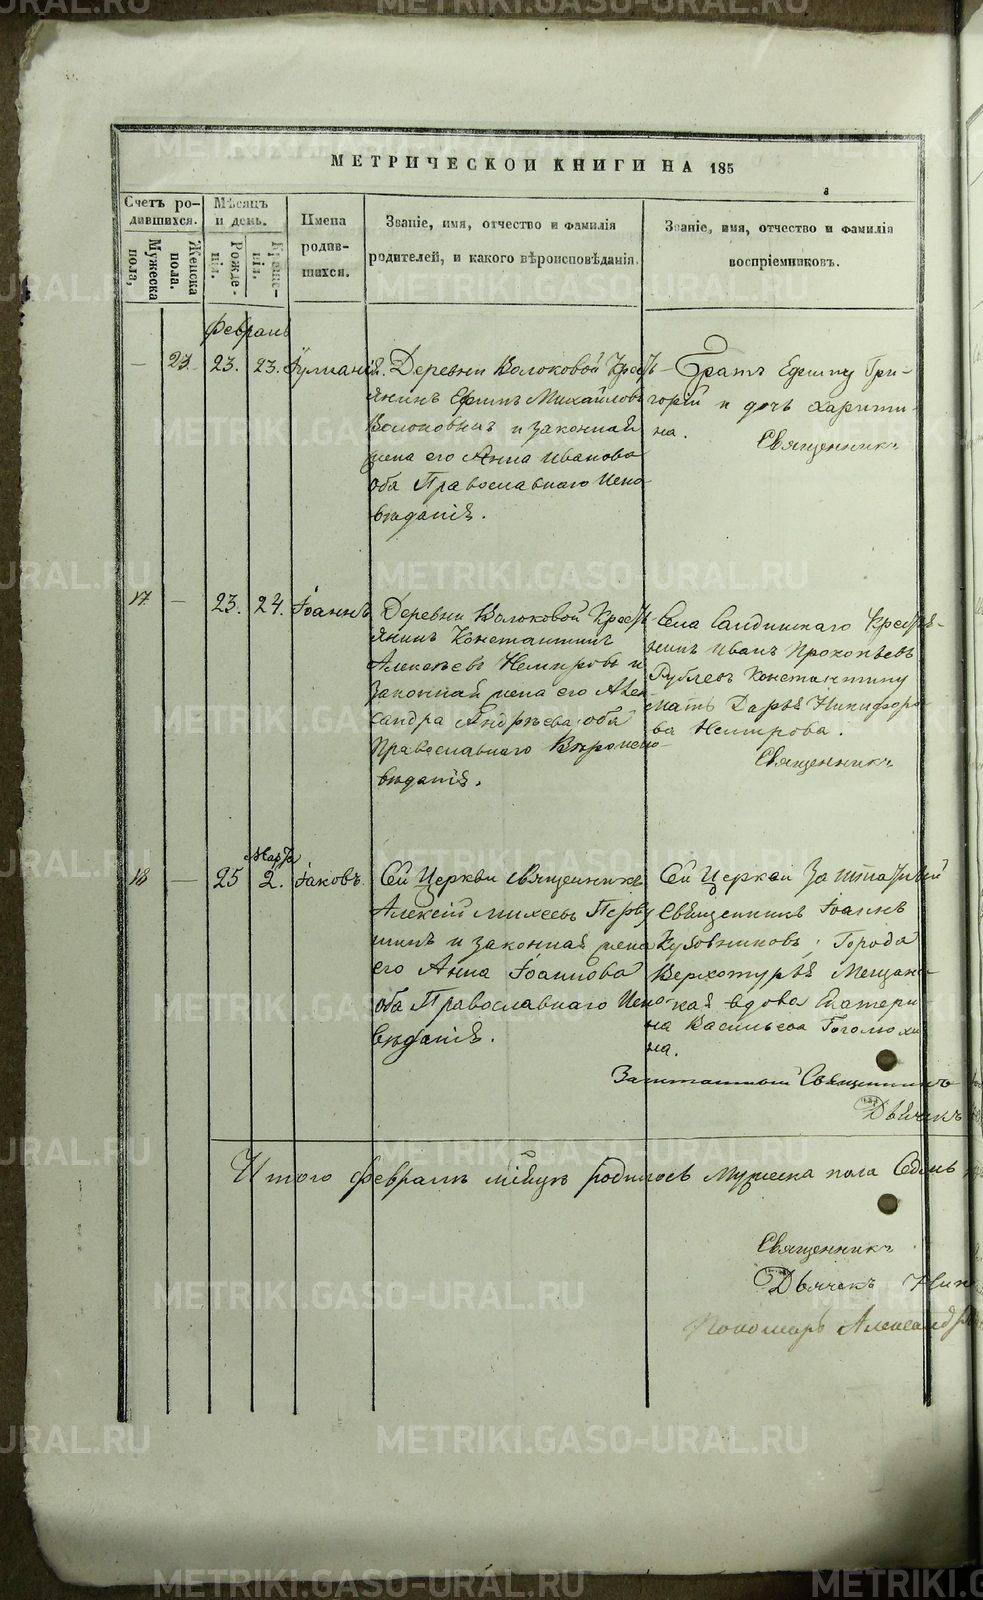 МЕТРИЧЕСКОЙ КНИГИ НА 185
Счетъ ро-
дившихся.
Мужеска
пола,
Женска
пола.
Мѣсяцъ
и день.
Рожде-
нія.
Креще-
нія.
Имена
родив-
шихся.
Званіе, имя, отчество и фамилія
родителей, и какого вѣроисповѣданія.
Званіе, имя, отчество и фамилія
воспріемниковъ.
Февраль
— 23. 23. 23.
Деревни Волоковой Кресть
янинъ Ефимъ Михайловъ
и законная
жена его Анна Иванова
оба Православнаго Испо-
вѣданія.
Братъ Ефиму Гри-
горій и дочь Харити-
на.
Священникъ
17 — 23. 24. Іоаннъ
Деревни Волоковой Кресть
янинъ Константинъ
Алексѣевъ Немировъ и
законная жена его Алек-
сандра Андреева оба
Православнаго Вѣроиспо-
вѣданія.
Села Салдинскаго Кресть-
нинъ Иванъ Прокопьевъ
Рублевъ Константину
мать Дарья Никифоро-
ва Немирова.
Священникъ
18 — 25 Марта 2. Іаковъ
Сей Церкви священникъ
Алексій Михеевъ Перву
шинъ и законная жена
его Анна Іоаннова
оба Православнаго Испо-
вѣданія.
Сей Церкви Заштатный
Священникъ Іоаннъ
Кузовниковъ; Города
Верхотурья Мещанс-
кая вдова Екатери
на Васильева Гоголюхи
на.
Заштатный Священникъ
Дьячекъ
Итого февралѣ мѣсяцѣ родилось Мужеска пола Седмь
Священникъ
Дьячекъ
Пономарь Александръ
METRIKI.GASO-URAL.RU